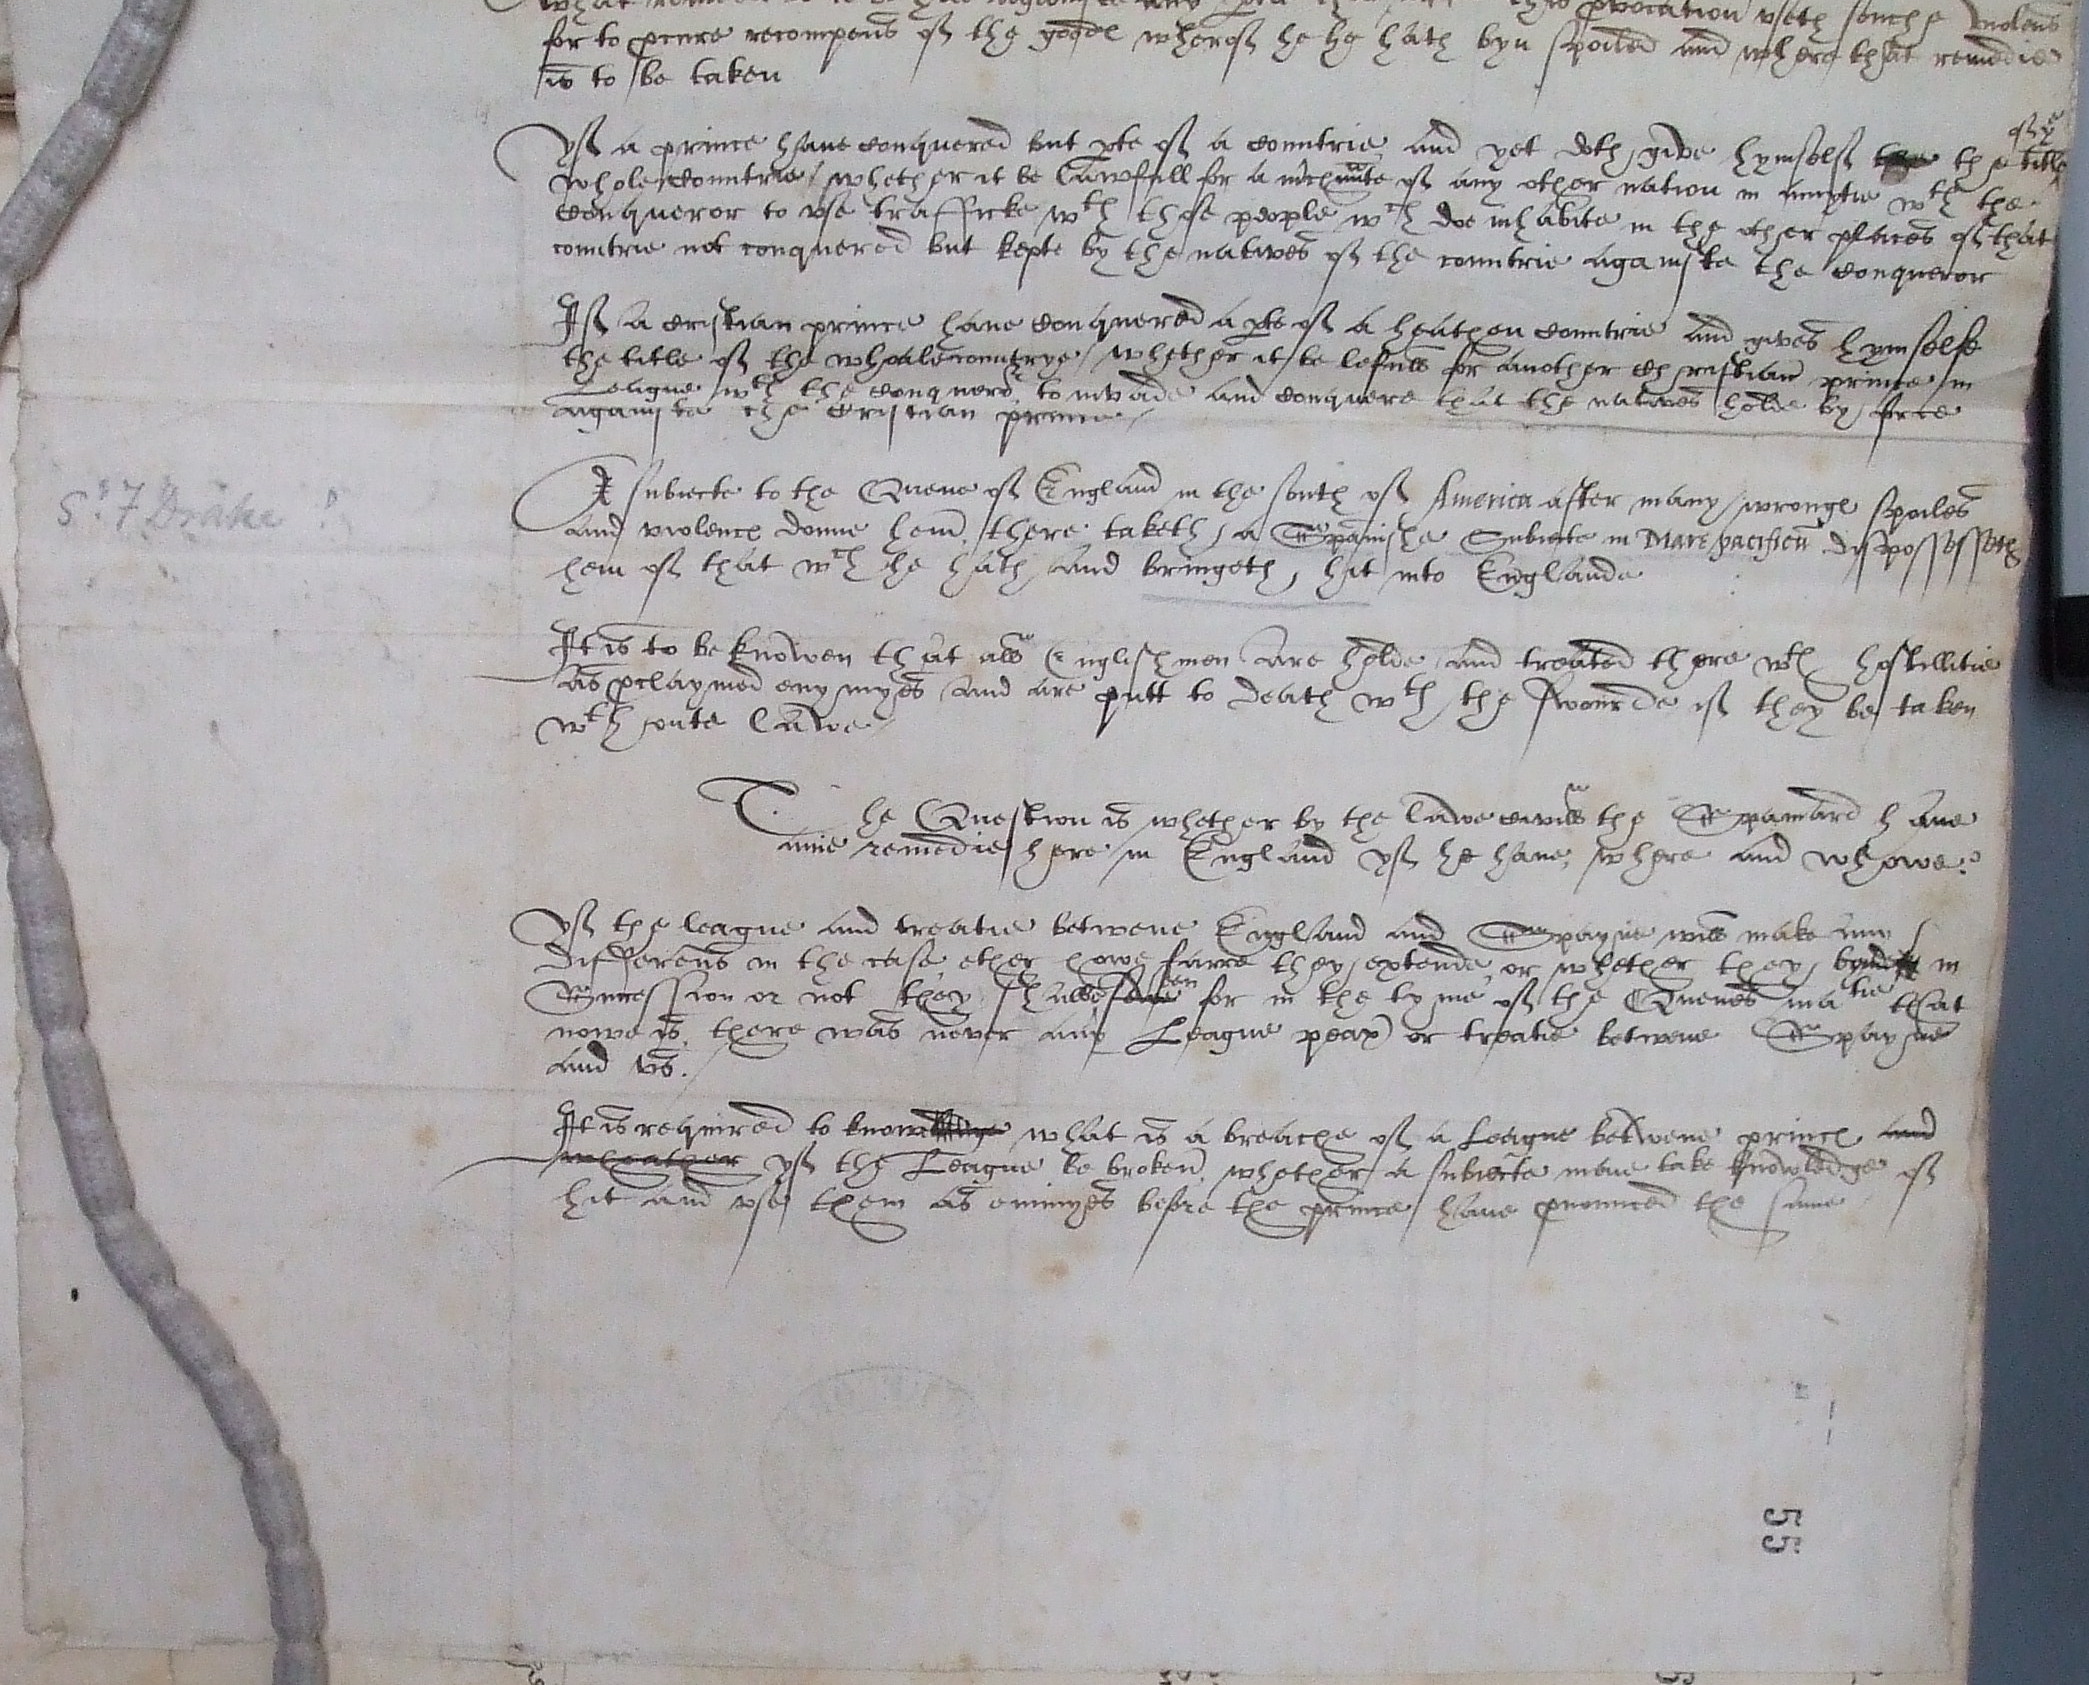 this provocation vseth souche violens
for to pcure recompens of the goodes wherof he he hath byn spoiled and where that remedie
is to be taken
yf a prince haue conquered but pte of a countrie and yet doth give hymself the title of ye
whole countrie / whether it be lawfull for a mchaunte of any other nation in amytie wth the
conqueror to vse trafficke wth those people wch doe inhabite in the other places of that
countrie not conquered but kepte by the natives of the countrie againste the conqueror
If a cristian prince haue conquered a pte of a heathen countrie and gives hymselfe
the title of the whoale countrye / whether it be lefull for another christian prince in
League wth the conqueror to invade and conquere that the natives holde by force
againste the cristian prince /
A subiecte to the Quene of England in the south of America after many wronges spoiles
and violences donne hem there taketh a Spanishe Subiecte in Mare pacificu disposesseth
hem of that wch he hath and bringeth hit into Englande
Sr F Drake ?
It is to be knowen that all Englishmen are holde and treated there wth hostillitie
as pclaymed enymyes and are putt to death wth the swourde if they be taken
wth oute lawe /
The Question is whether by the lawe civill the Spaniard haue
anie remedie here in England yf he haue, where and whowe ?
yf the league and treatie betwene England and Spayne will make any
differens in the case, ether howe farre they extende, or whether they bynde in
Succession or not they shalbe seen for in the tyme of the Quenes matie that
nowe is, there was never any League peax or treatie betwene Spayne
and vs.
It is required to know what is a breache of a League betwene princes and
wheather yf the League be broken, whether a subiecte maie take knowledge of
hit and vse them as enimyes before the prince haue pnounced the same
55